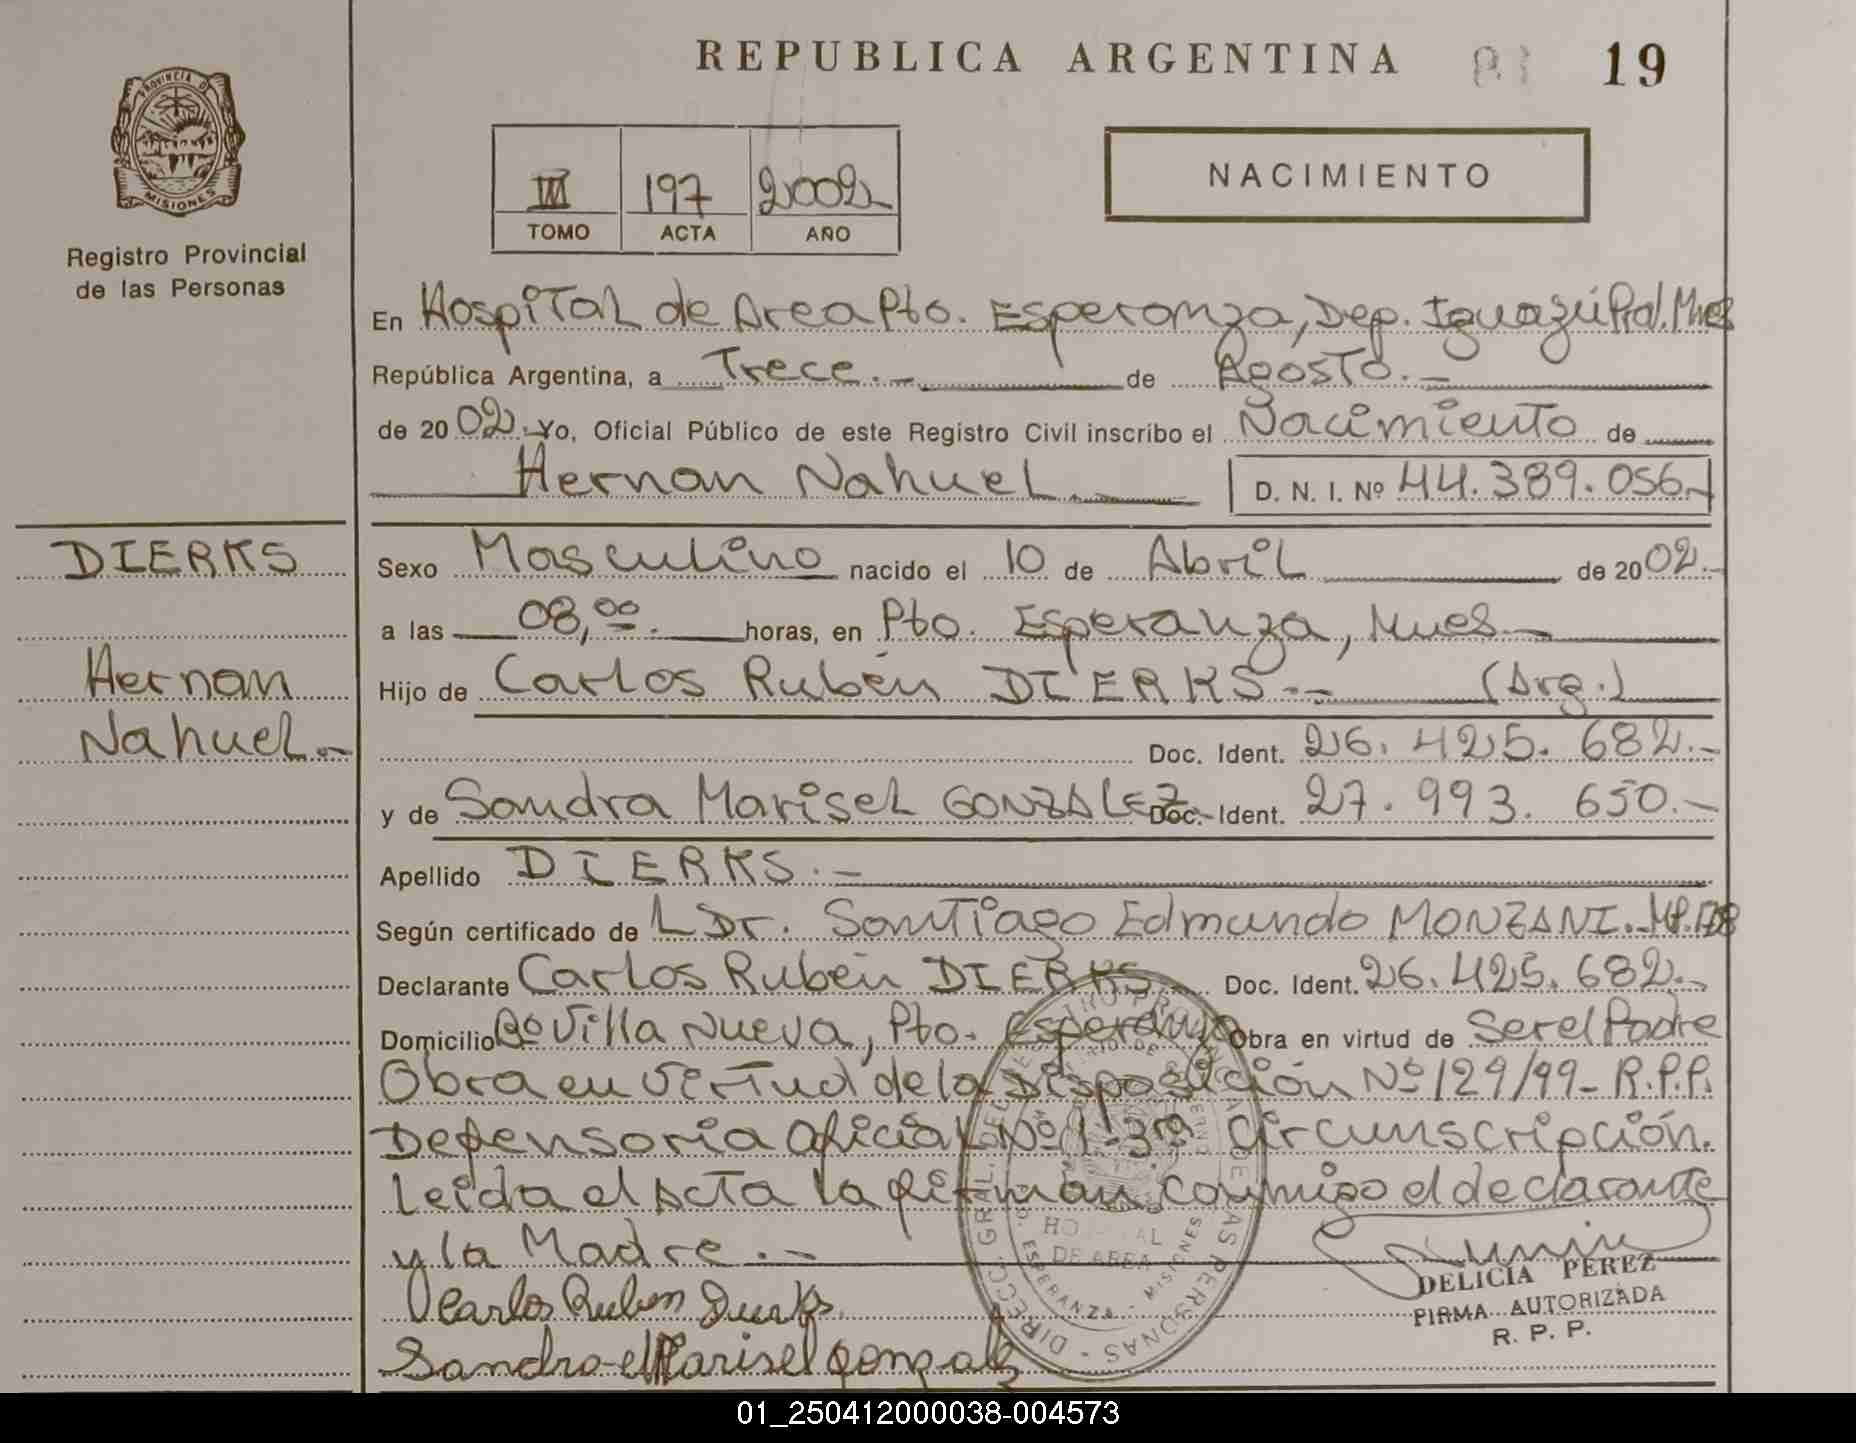 REPUBLICA ARGENTINA 19
PROVINCIA DE
MISIONES
Registro Provincial
de las Personas
III 197 2002
TOMO ACTA AÑO
NACIMIENTO
En Hospital de Area Pto. Esperanza, Dep. Iguazú
República Argentina, a Trece.- de Agosto.-
de 2002. Yo, Oficial Público de este Registro Civil inscribo el Nacimiento de
Hernan Nahuel.- D. N. I. Nº 44.389.056.-
DIERKS
Hernan
Nahuel.-
Sexo Masculino nacido el 10 de Abril de 2002.-
a las 08,00. horas, en Pto. Esperanza, Mnes.-
Hijo de Carlos Rubén DIERKS.- (Arg.)
Doc. Ident. 26.425.682.-
y de Sandra Marisel GONZALEZ.- Doc. Ident. 27.993.650.-
Apellido DIERKS.-
Según certificado de L Dr. Santiago Edmundo MONZANI.-
Declarante Carlos Rubén DIERKS.- Doc. Ident. 26.425.682.-
Domicilio Bº Villa Nueva, Pto. Esperanza Obra en virtud de Ser el Padre
Obra en virtud de la Disposición Nº 129/99- R.P.P.
Defensoria Oficial Nº 1- 3ra Circunscripción.
Leida el Acta la firman conmigo el declarante
y la Madre.-
Carlos Ruben Dierks.
Sandra Marisel Gonzalez
HOSPITAL
DE AREA
ESPERANZA - MISIONES
DELICIA PEREZ
FIRMA AUTORIZADA
R. P. P.
01_250412000038-004573